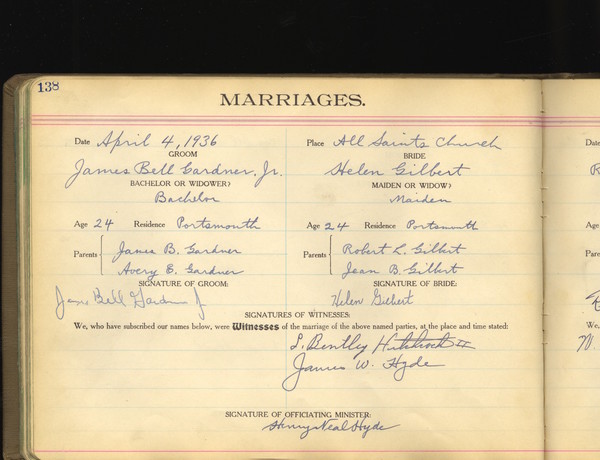 138
MARRIAGES.
Date April 4, 1936 Place All Saints Church
GROOM BRIDE
James Bell Gardner, Jr. Helen Gilbert
BACHELOR OR WIDOWER? MAIDEN OR WIDOW?
Bachelor Maiden
Age 24 Residence Portsmouth Age 24 Residence Portsmouth
Parents James B. Gardner Parents Robert L. Gilbert
Avery E. Gardner Jean B. Gilbert
SIGNATURE OF GROOM: SIGNATURE OF BRIDE:
James Bell Gardner Jr Helen Gilbert
SIGNATURES OF WITNESSES:
We, who have subscribed our names below, were Witnesses of the marriage of the above named parties, at the place and time stated:
L. Bentley II
James W. Hyde
SIGNATURE OF OFFICIATING MINISTER:
Henry Neal Hyde